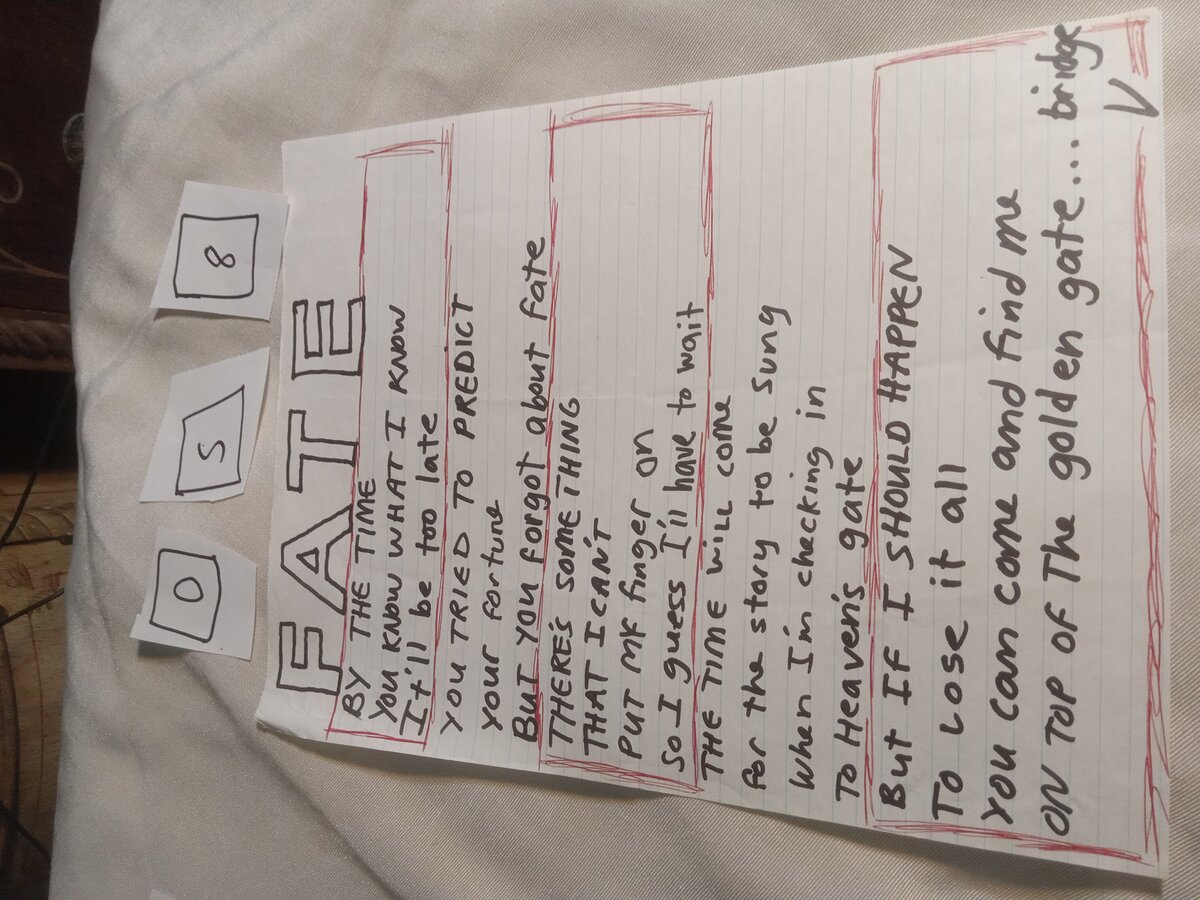 0
5
8
FATE
BY THE TIME
YOU KNOW WHAT I KNOW
It'll be too late
YOU TRIED TO PREDICT
YOUR FORTUNE
BUT YOU forgot about fate
THERE'S SOMETHING
THAT I CAN'T
PUT MY finger on
SO I guess I'll have to wait
THE TIME WILL come
for the story to be sung
When I'm checking in
TO Heaven's gate
But IF I SHOULD HAPPEN
To Lose it all
You can come and find me
ON TOP OF The golden gate... bridge
V